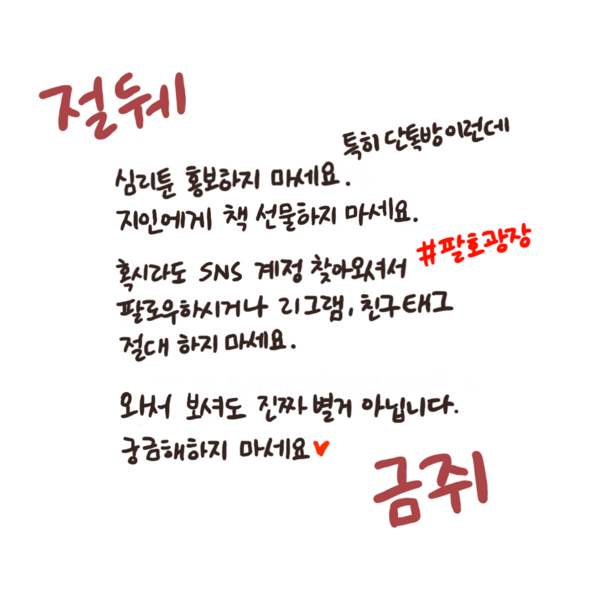 절뒈
특히 단톡방이런데
심리툰 홍보하지 마세요.
지인에게 책 선물하지 마세요.
#팔호광장
혹시라도 SNS 계정 찾아오셔서
팔로우하시거나 리그램, 친구태그
절대 하지마세요.
와서 보셔도 진짜 별거 아닙니다.
궁금해하지 마세요♥
금쥐